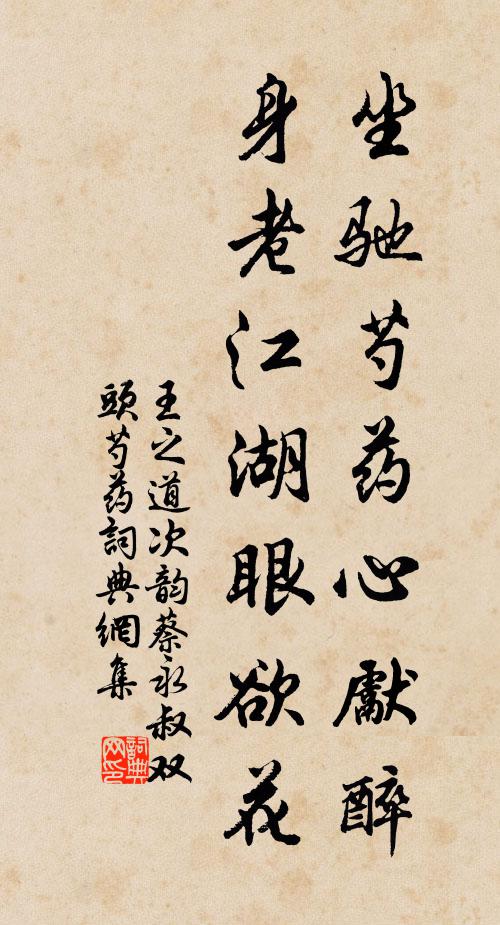 坐驰芍药心献醉
身老江湖眼欲花
王之道次韵蔡永叔双
頭芍药詞典網集
詞典网印